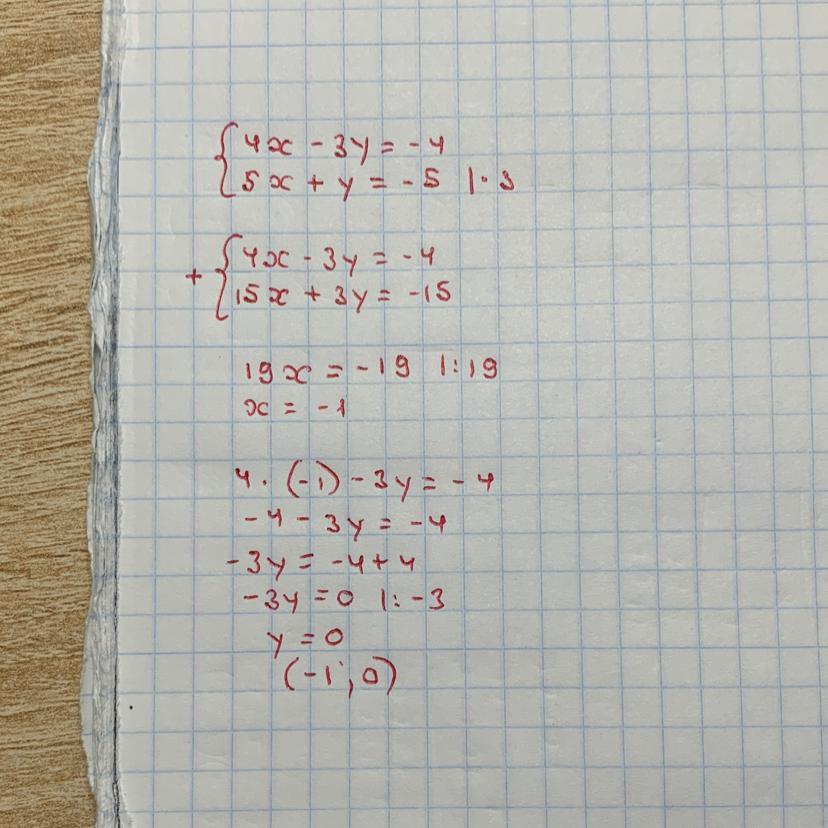 {4x - 3y = -4
5x + y = -5 |·3
+ {4x - 3y = -4
15x + 3y = -15
19x = -19 |:19
x = -1
4·(-1) - 3y = -4
-4 - 3y = -4
-3y = -4+4
-3y = 0 |:-3
y = 0
(-1; 0)